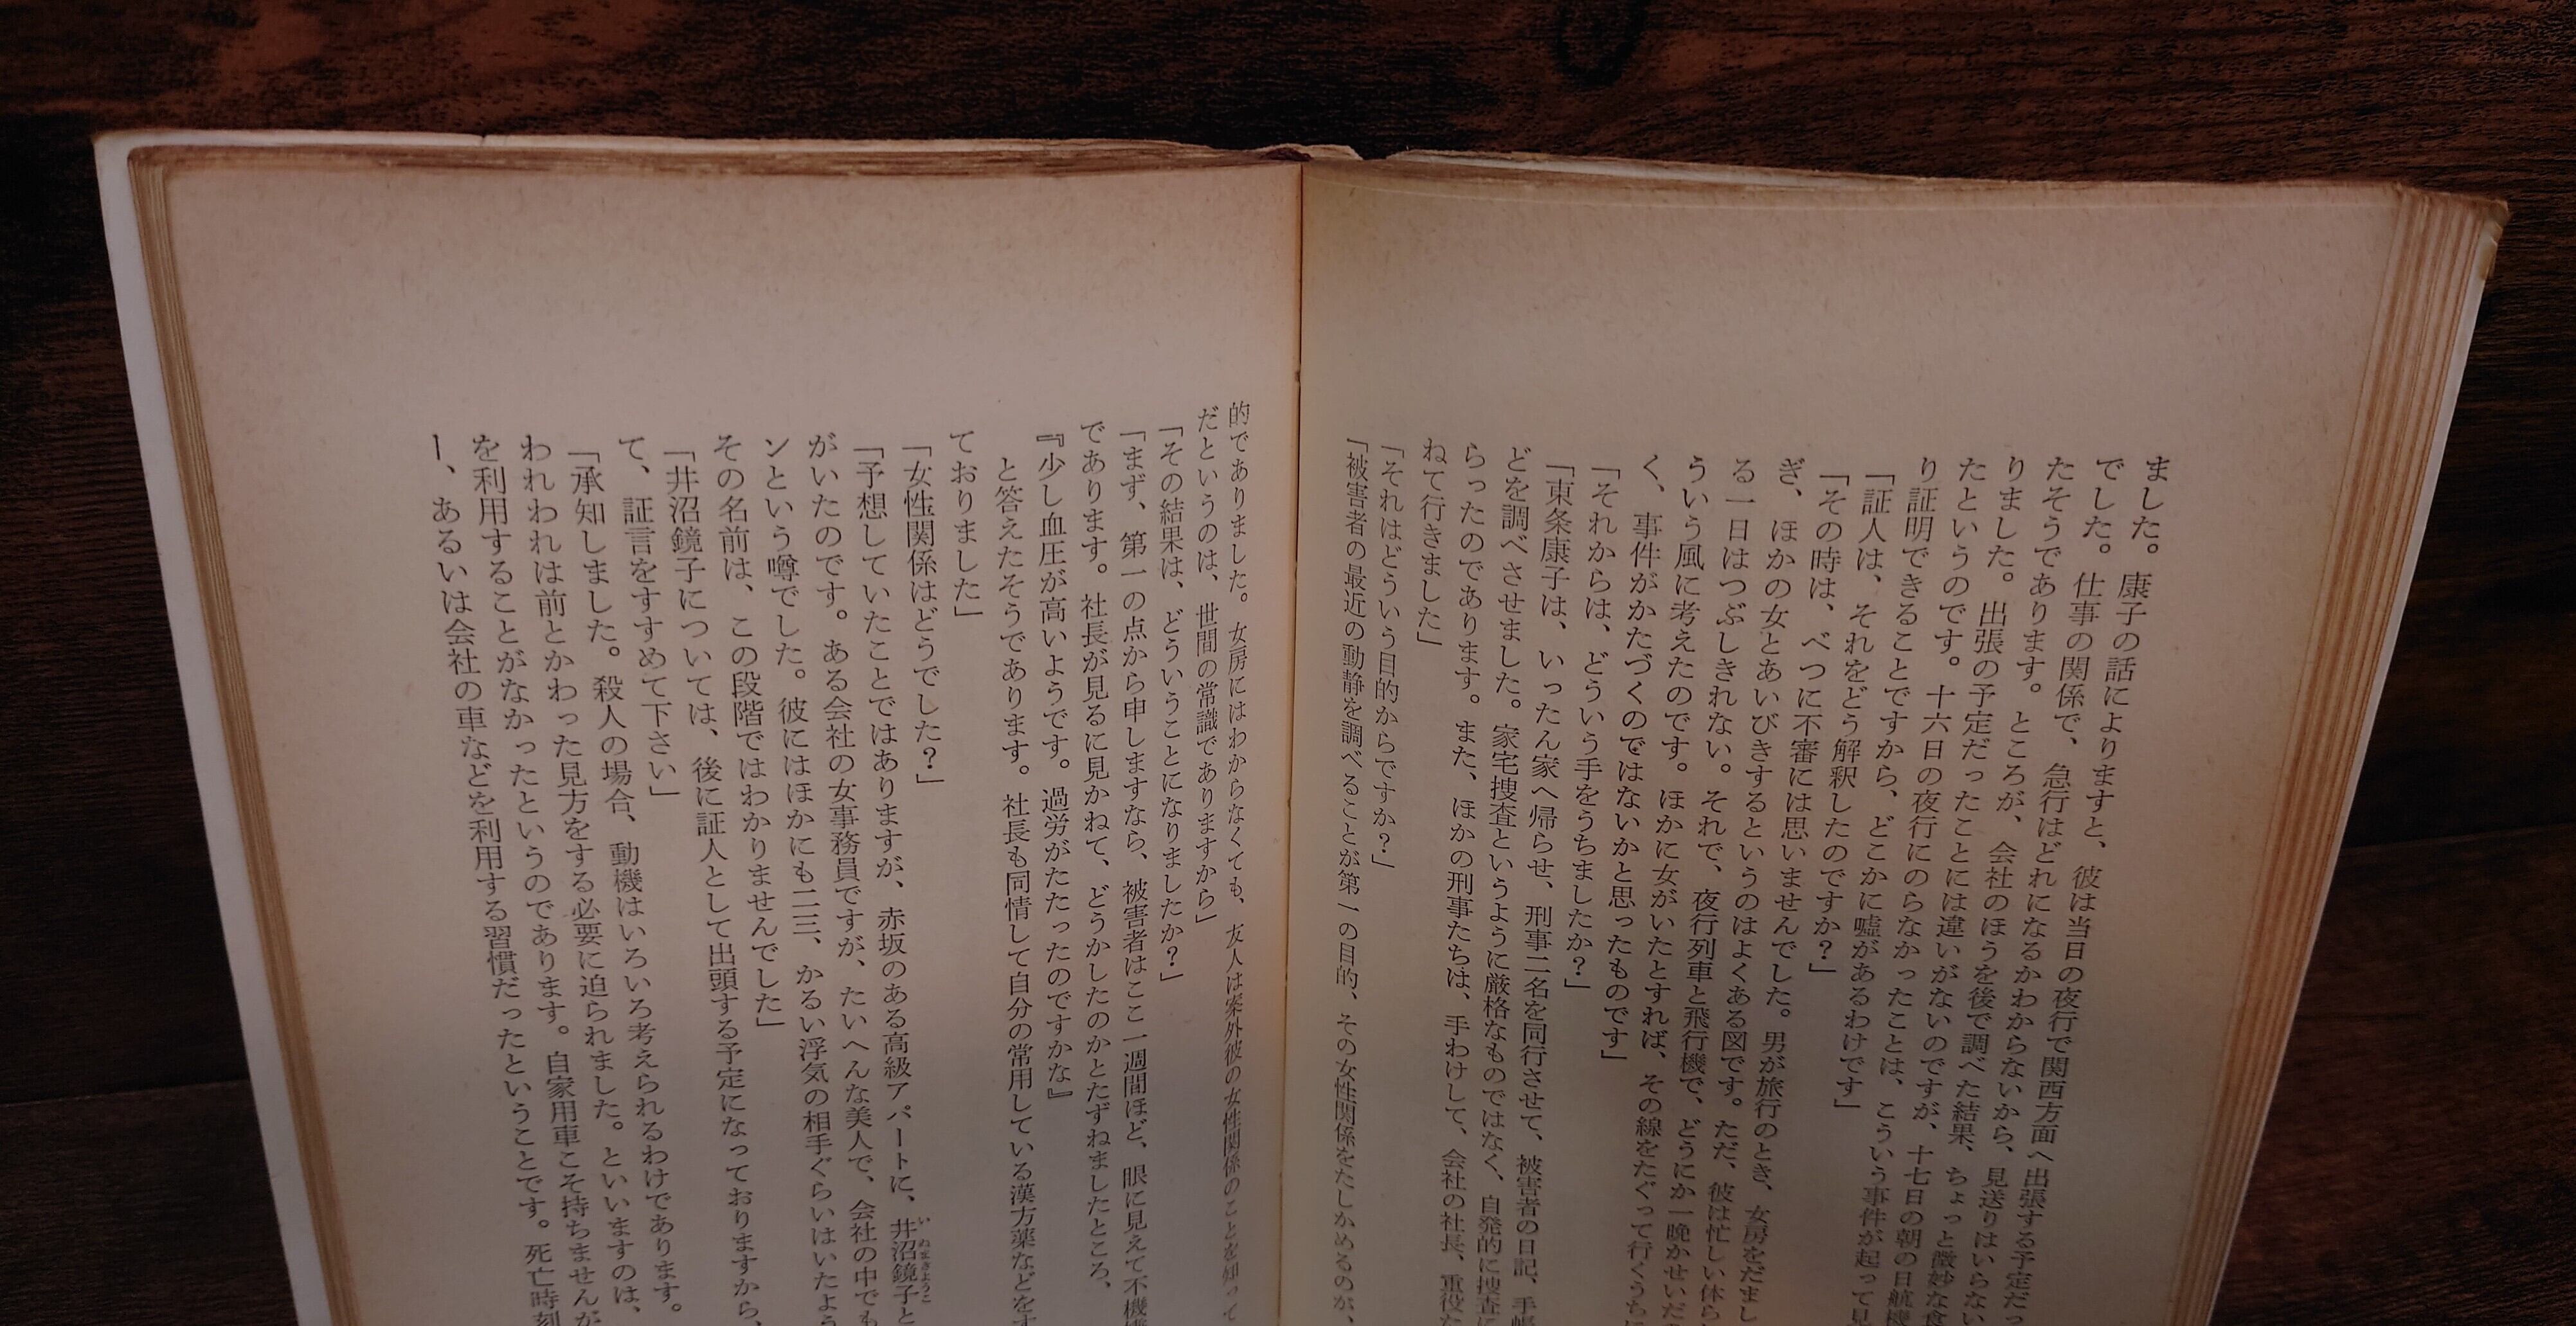 ました。康子の話によりますと、彼は当日の夜行で関西方面へ出張する予定だっ
でした。仕事の関係で、急行はどれになるかわからないから、見送りはいらない
たそうであります。ところが、会社のほうを後で調べた結果、ちょっと微妙な食
りました。出張の予定だったことには違いがないのですが、十七日の朝の日航機
たというのです。十六日の夜行にのらなかったことは、こういう事件が起って見
り証明できることですから、どこかに嘘があるわけです」
「証人は、それをどう解釈したのですか？」
「その時は、べつに不審には思いませんでした。男が旅行のとき、女房をだまし
ぎ、ほかの女とあいびきするというのはよくある図です。ただ、彼は忙しい休ら
る一日はつぶしきれない。それで、夜行列車と飛行機で、どうにか一晩かせいだ
ういう風に考えたのです。ほかに女がいたとすれば、その線をたぐって行くうち
く、事件がかたづくのではないかと思ったものです」
「それからは、どういう手をうちましたか？」
「東条康子は、いったん家へ帰らせ、刑事二名を同行させて、被害者の日記、手
どを調べさせました。家宅捜査というように厳格なものではなく、自発的に捜査に
らったのであります。また、ほかの刑事たちは、手わけして、会社の社長、重役た
ねて行きました」
「それはどういう目的からですか？」
「被害者の最近の動静を調べることが第一の目的、その女性関係をたしかめるのが、
的でありました。女房にはわからなくても、友人は案外彼の女性関係のことを知って
だというのは、世間の常識でありますから」
「その結果は、どういうことになりましたか？」
「まず、第一の点から申しますなら、被害者はここ一週間ほど、眼に見えて不機
であります。社長が見るに見かねて、どうかしたのかとたずねましたところ、
『少し血圧が高いようです。過労がたたったのですかな』
と答えたそうであります。社長も同情して自分の常用している漢方薬などをす
ておりました」
「女性関係はどうでした？」
「予想していたことではありますが、赤坂のある高級アパートに、井沼鏡子と
がいたのです。ある会社の女事務員ですが、たいへんな美人で、会社の中でも
ンという噂でした。彼にはほかにも二三、かるい浮気の相手ぐらいはいたよう
その名前は、この段階ではわかりませんでした」
「井沼鏡子については、後に証人として出頭する予定になっておりますから、
て、証言をすすめて下さい」
「承知しました。殺人の場合、動機はいろいろ考えられるわけであります。
われわれは前とかわった見方をする必要に迫られました。といいますのは、
を利用することがなかったというのであります。自家用車こそ持ちませんが
ー、あるいは会社の車などを利用する習慣だったということです。死亡時刻